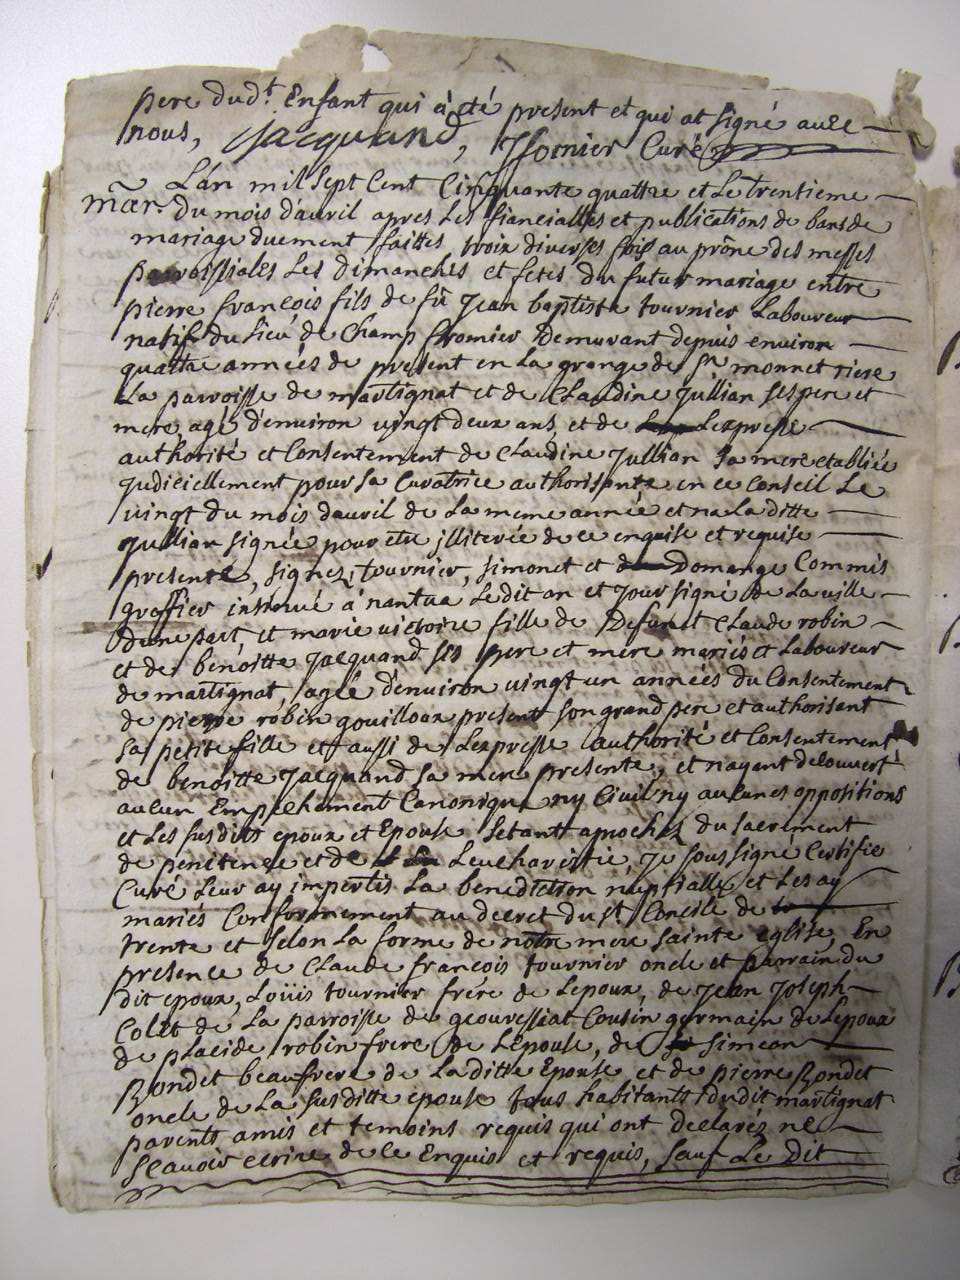 pere dud.t Enfant qui à été present et qui at signé avec
nous, Jacquand, Tournier Curé
L'an mil sept Cent Cinquante quattre et Le trentieme
mar. du mois d'avril apres Les fiancialles et publications de bans de
mariage duement faittes, trois diverses fois au prône des messes
parroissiales Les dimanches et fetes du futur mariage entre
pierre françois fils de fû Jean baptiste tournier Laboureur
natif du Lieu de Champ fromier Demurant depuis environ
quattre années de present en La grange de Sr monnet riere
La parroisse de martignat et de Claudine Jullian ses pere et
mere, agé d'environ vingt deux ans, et de Lexpresse
authorité et Consentement de Claudine Jullian sa mere etabliée
Judiciellement pour sa Curatrice authorisante en ce Conseil Le
vingt du mois d'avril de La meme année et na La ditte
Jullian signée pour etre jlliterée de ce enquise et requise
presente, signez, tournier, simonet et Domange Commis
greffier insinué à nantua Le dit an et jour signé de La ville
d'une part, et marie victoire fille de Defunct Claude robin
et de benoitte Jacquand ses pere et mere mariés et Laboureur
de martignat, agée d'environ vingt un années du Consentement
de pierre robin gouilloux present son grand pere et authorisant
sa petite fille et aussi de Lexpresse authorité et Consentement
de benoitte Jacquand sa mere presente, et n'ayant decouvert
aucun Empechement Canonique ny Civil ny aucunes oppositions
et Les susdits epoux et Epouse setant aprochez du sacrement
de penitence et de Leucharistie, Je soussigné Certifie
Curé Leur ay impertis La benediction nuptialle et Les ay
mariés Conformement au decret du st Concile de
trente et selon La forme de notre mere sainte eglise, En
presence de Claude françois tournier oncle et parrain du
dit epoux, Loüis tournier frére de Lepoux, de Jean Joseph
Colet de La parroisse de geouvessiat Cousin germain de Lepoux
de placide robin frere de Lepouse, de simeon
Rondet beaufrere de La ditte Epouse et de pierre Rondet
oncle de La susditte epouse tous habitants dudit martignat
parents amis et temoins requis qui ont declarés ne
scavoir ecrire de ce Enquis et requis, sauf Le dit